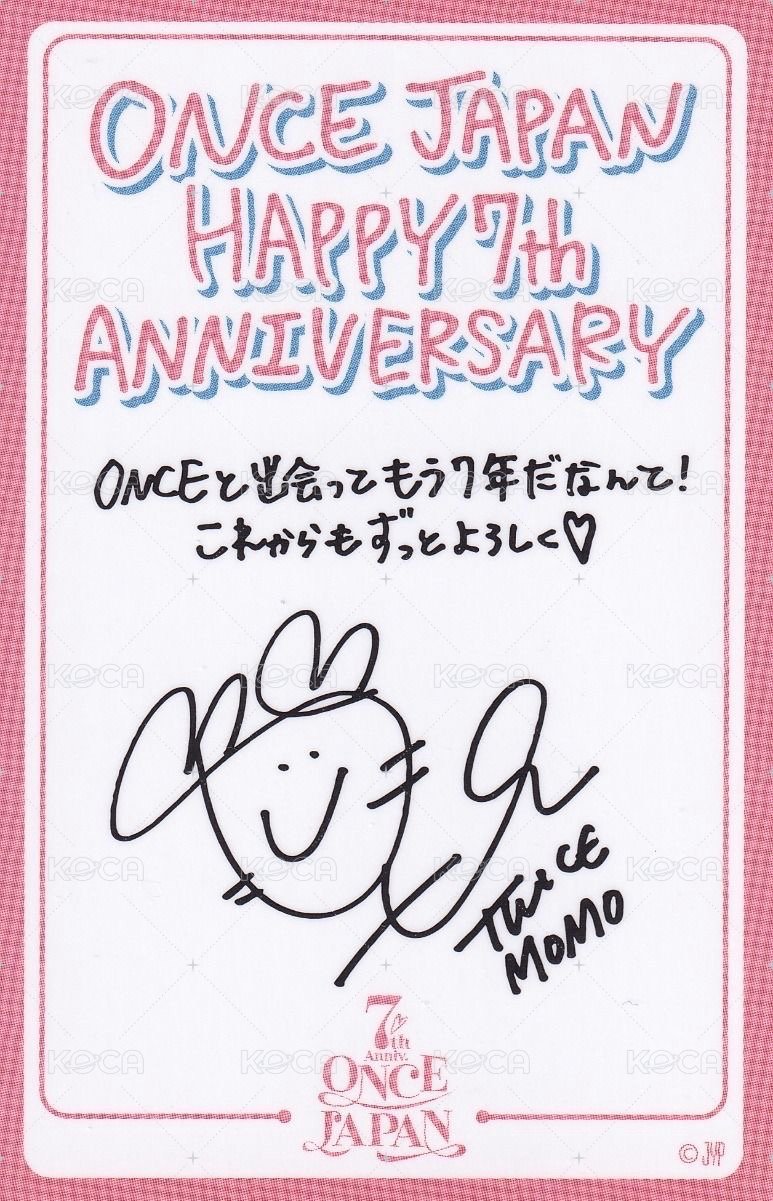 ONCE JAPAN
HAPPY 7th
ANNIVERSARY
ONCEと出会ってもう7年だなんて！
これからもずっとよろしく♡
TWICE
MOMO
7th
Anniv.
ONCE
JAPAN
©JYP
KOCA